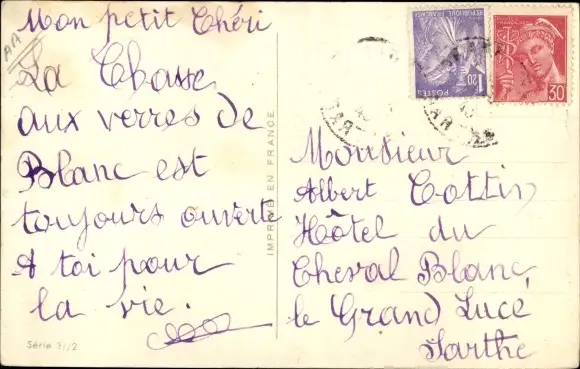 Mon petit Chéri
La Chasse
aux verres de
Blanc est
toujours ouverte
A toi pour
la vie.
Série 31/2
IMPRIMÉ EN FRANCE
RÉPUBLIQUE FRANÇAISE
POSTES
1,20
30
Monsieur
Albert Cottin
Hôtel du
Cheval Blanc,
le Grand Luce
Sarthe
AA